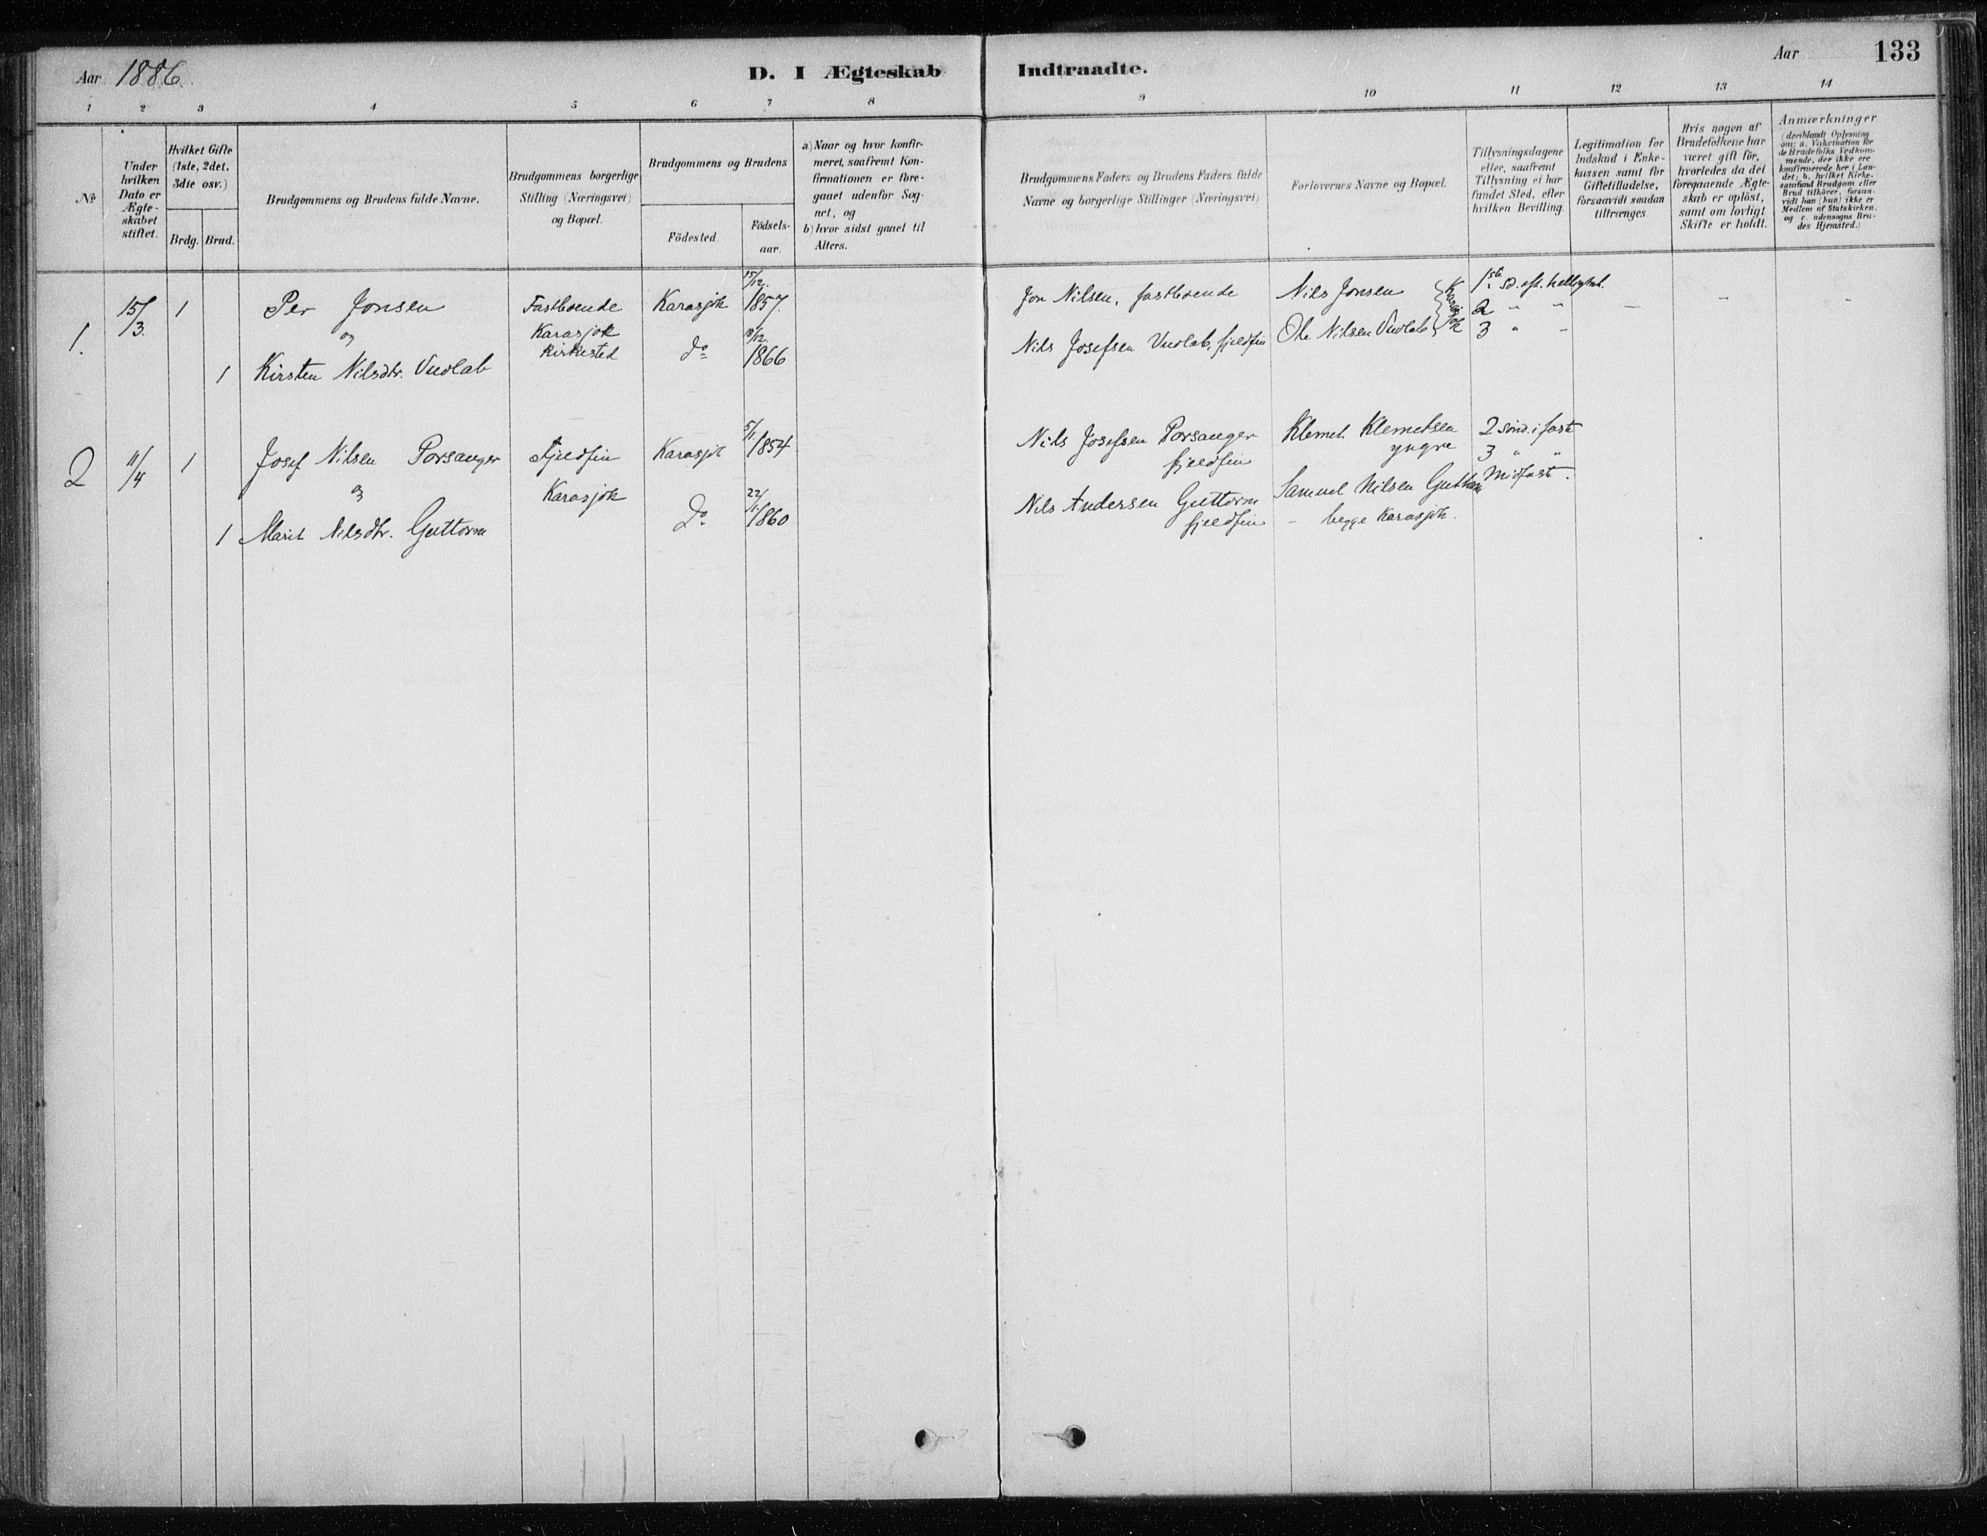 Aar 1886.
D. I Ægteskab Indtraadte.
Aar 133
1 2 3 4 5 6 7 8 9 10 11 12 13 14
No
Under hvilken Dato er Ægteskabet stiftet.
Hvilket Gifte (1ste, 2det, 3die osv.)
Brdg. Brud.
Brudgommens og Brudens fulde Navne.
Brudgommens borgerlige Stilling (Næringsvei) og Bopæl.
Brudgommens og Brudens
Födested.
Födselsaar.
a) Naar og hvor konfirmeret, saafremt Konfirmationen er foregaaet udenfor Sognet, og
b) hvor sidst gaaet til Alters.
Brudgommens Faders og Brudens Faders fulde Navne og borgerlige Stillinger (Næringsvei)
Forlovernes Navne og Bopæl.
Tillysningsdagene eller, saafremt Tillysning ei har fundet Sted, efter hvilken Bevilling.
Legitimation for Indskud i Enkekassen samt for Giftetilladelse, forsaavidt saadan tiltrænges.
Hvis nogen af Brudefolkene har været gift för, hvorledes da det foregaaende Ægteskab er oplöst, samt om lovligt Skifte er holdt.
Anmærkninger
(deriblandt Oplysning om; a. Vakcination for de Brudefolks Vedkommende, der ikke ere konfirmerede her i Landet; b. hvilket Kirkesamfund Brudgom eller Brud tilhörer, forsaavidt han (hun) ikke er Medlem af Statskirken. og c. udensogns Brudes Hjemsted.)
1. 15/3. 1 Per Jonsen Fastboende Karasjok 15/12. 1857. Jon Nilsen, fastboende Nils Jonsen 1ste sd. eft. helligtrek.
og Karasjok Kirkested 2 " "
1 Kirsten Nilsdtr. Vuolab do 18/12. 1866 Nils Josefsen Vuolab, fjeldfin Ole Nilsen Vuolab Karasjok 3 " "
2 11/4 1 Josef Nilsen Porsanger Fjeldfin Karasjok 5/1 1854 Nils Josefsen Porsanger fjeldfin Klemet Klemetsen yngre 2 sönd. i faste
og Karasjok 3 " "
1 Marit Nilsdtr. Guttorm Do 22/1 1860 Nils Andersen Guttorm fjeldfin Samuel Nilsen Guttorm Midfaste.
- begge Karasjok.